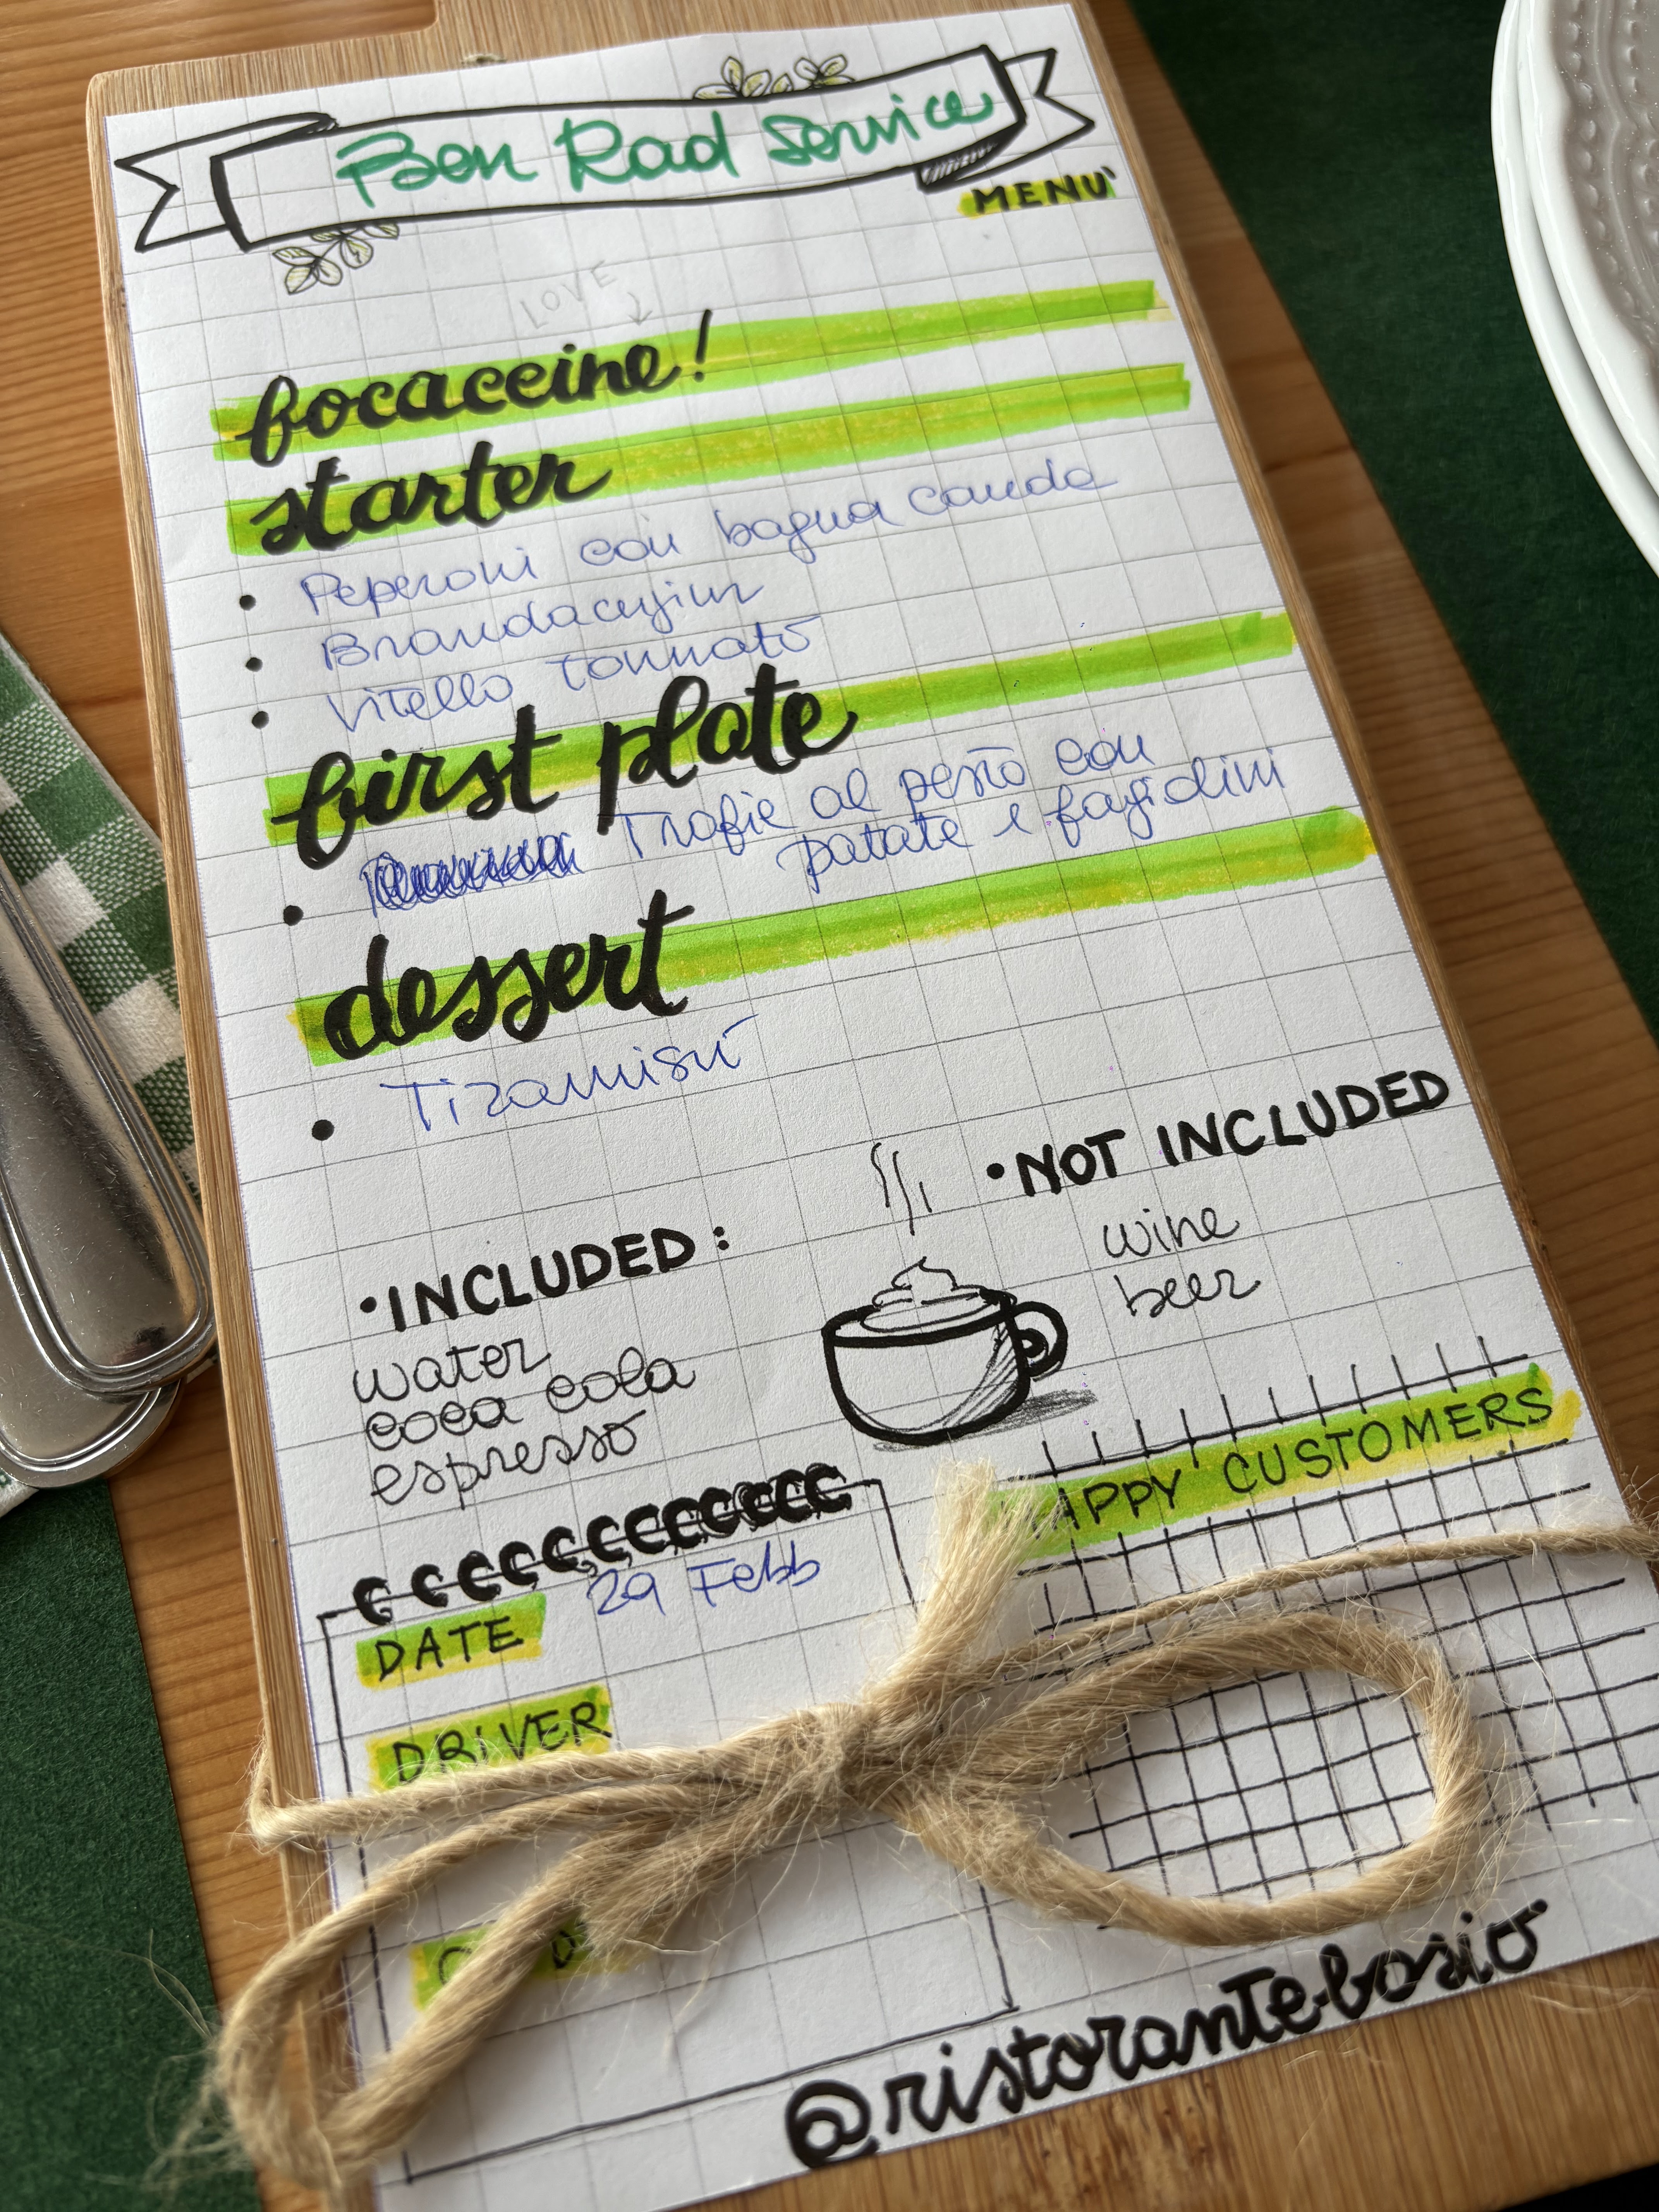 Ben Rad Service
MENU'
LOVE
focacceine!
starter
• Peperoni con bagna cauda
• Brandacujun
• Vitello tonnato
first plate
• Trofie al pesto con
patate e fagiolini
dessert
• Tiramisù
• NOT INCLUDED
wine
beer
• INCLUDED:
water
coca cola
espresso
APPY CUSTOMERS
29 Febb
DATE
DRIVER
@ristorante.bosio